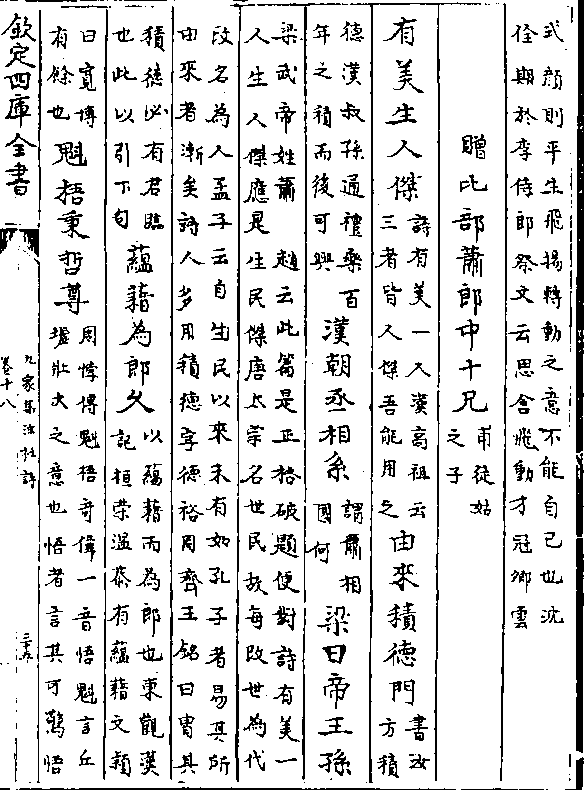 式顔則平生飛揚轉動之意不能自已也沈
佺期於李侍郎祭文云思含飛動才冠卿雲
贈比部蕭郎中十兄 甫從姑
之子
有美生人傑 詩有美一人漢高祖云
三者皆人傑吾能用之 由來積德門 書汝
方積
德漢叔孫通禮樂百
年之積而後可興 漢朝丞相系 謂蕭相
國何 梁日帝王孫
梁武帝姓蕭 趙云此篇是正格破題便對詩有美一
人生人傑應是生民傑唐太宗名世民故每改世為代
改名為人孟子云自生民以來未有如孔子者易其所
由來者漸矣詩人多用積德字德裕周齊王銘曰胄其
積德必有君臨
也此以引下句 蘊藉為郎久 以蘊藉而為郎也東觀漢
記桓荣温恭有蘊藉文頴
曰寛博
有餘也 魁梧秉哲尊 周悖傅魁梧奇偉一音悟魁言丘
壚壯大之意也悟者言其可驚悟
欽定四庫全書
九家集注杜詩
卷十八